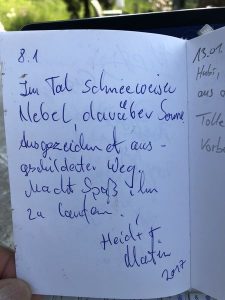 8.1
Im Tal schneeweiser
Nebel, darüber Sonne
Ausgezeichnet aus-
geschilderter Weg.
Macht Spaß ihn
zu laufen!
Heidi +
Martin
2017
13.01.
aus
Tolle
Vorb